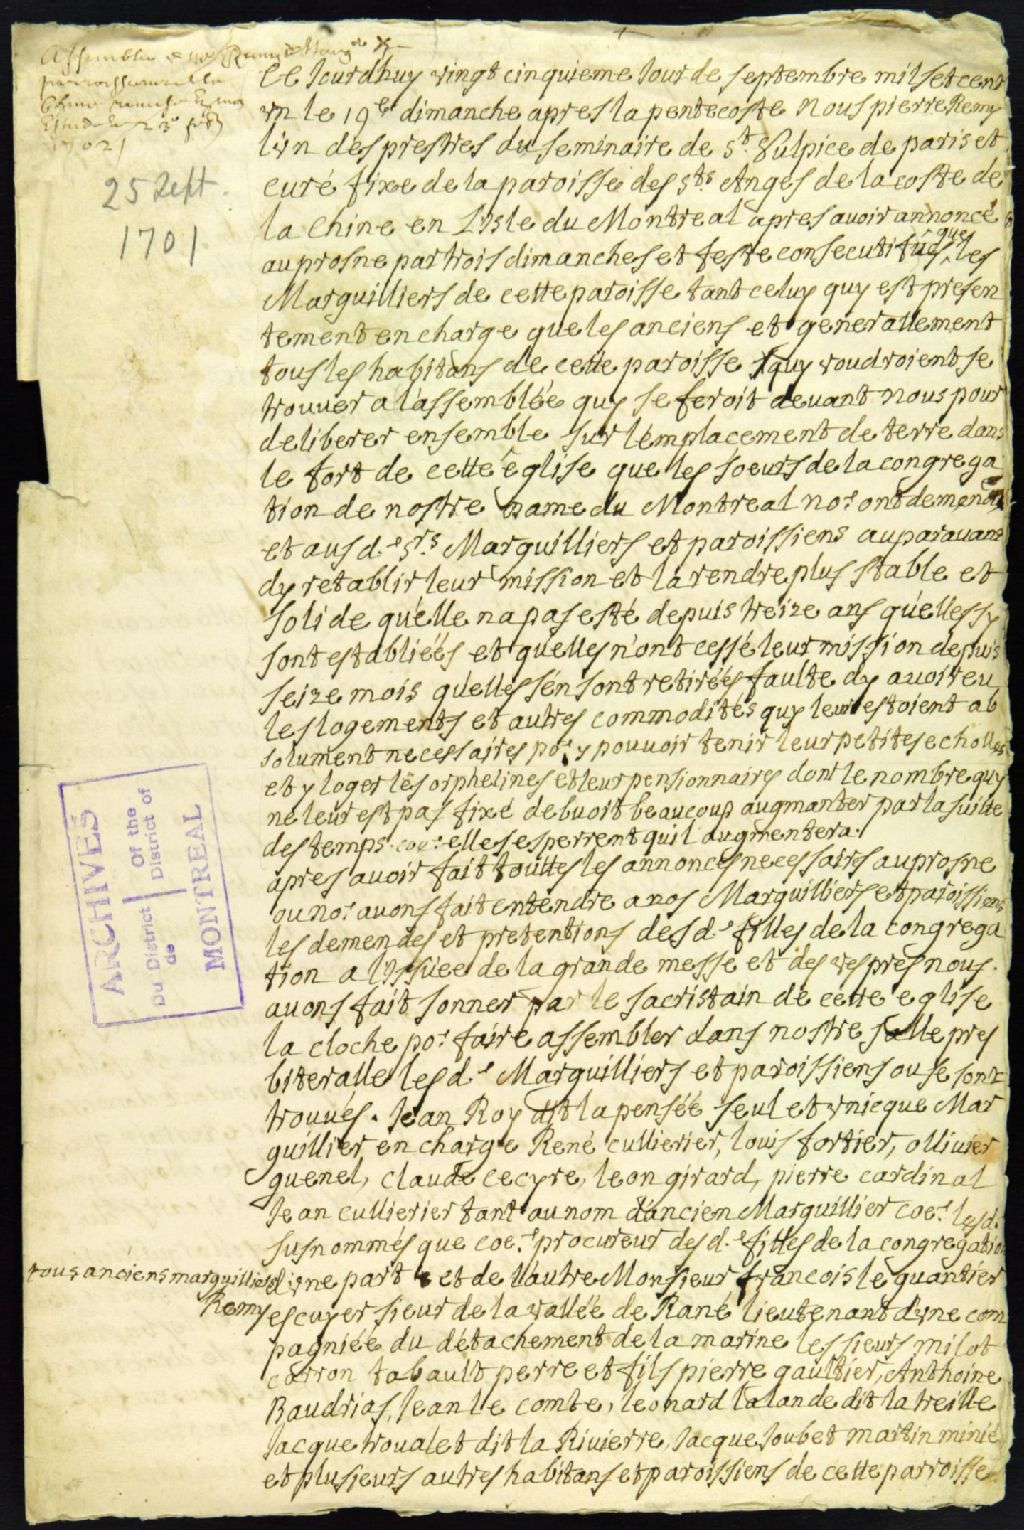 Assemblee
parroissienne de la
Chine
1702
25 Sept.
1701
Ce Jourdhuy vingt cinquieme Jour de septembre mil set cent
vn le 19e dimanche apres la pentecoste Nous pierre Remy
l'vn des prestres du seminaire de St Sulpice de paris et
curé fixe de la paroisse des Sts Anges de la coste de
la Chine en L'isle du Montreal apres auoir annoncé
au prosne par trois dimanches et feste consecutifues que les
Marguilliers de cette paroisse tant celuy quy est presen
tement en charge que les anciens et generallement
tous les habitans de cette paroisse quy voudroient se
trouuer a l'assemblée quy se feroit deuant Nous pour
deliberer ensemble sur lemplacement de terre dans
le fort de cette eglise que les soeurs de la congrega
tion de nostre Dame du Montreal nos ont demendé
et aus d.s Srs Marguilliers et paroissiens auparauant
dy retablir leur mission et la rendre plus stable et
solide qu'elle na pas esté depuis treize ans qu'elles sy
sont establiéés et quelles n'ont cessé leur mission depuis
seize mois qu'elles s'en sont retirées faulte dy auoir eu
les logements et autres commodités quy leur estoient ab
solument necessaires por y pouuoir tenir leur petites echolles
et y loger les orphelines et leur pensionnaires dont le nombre quy
ne leur est pas fixé debuoit beaucoup augmanter par la suitte
des temps coe elles esperrent quil augmentera.
apres auoir fait touttes les annonces necessairs au prosne
ou nos auons fait entendre a nos Marguilliers et paroissiens
les demendes et pretentions des d.s filles de la congrega
tion a l'issuee de la grande messe et des vespres nous
auons fait sonner par le sacristain de cette eglise
la cloche por faire assembler dans nostre salle pres
biteralle les d.s Marguilliers et paroissiens ou se sont
trouués. Jean Roy dit la pensée seul et vnicque Mar
guillier en charge René cullierier, louis fortier, olliuier
quenel, claude cecyre, leon girard, pierre cardinal
Jean cullierier tant au nom d'ancien Marguillier coe les d.
susnommés que coe procureur des d.s filles de la congregation
tous anciens marguilliers
Remy
d'vne part et de l'autre Monsieur francois le quantier
escuyer sieur de la vallée de Rané lieutenant d'vne com
pagniée du détachement de la marine les sieurs milot
carron tabault perre et fils pierre gaultier, Anthoine
Baudrias, Jean le comte, leonard lalande dit la treille
Jacque trouallet dit la Rivierre, Jacque Joubet martin minié
et plusieurs autres habitans et paroissiens de cette parroisse
ARCHIVES
Du District Of the
de District of
MONTREAL